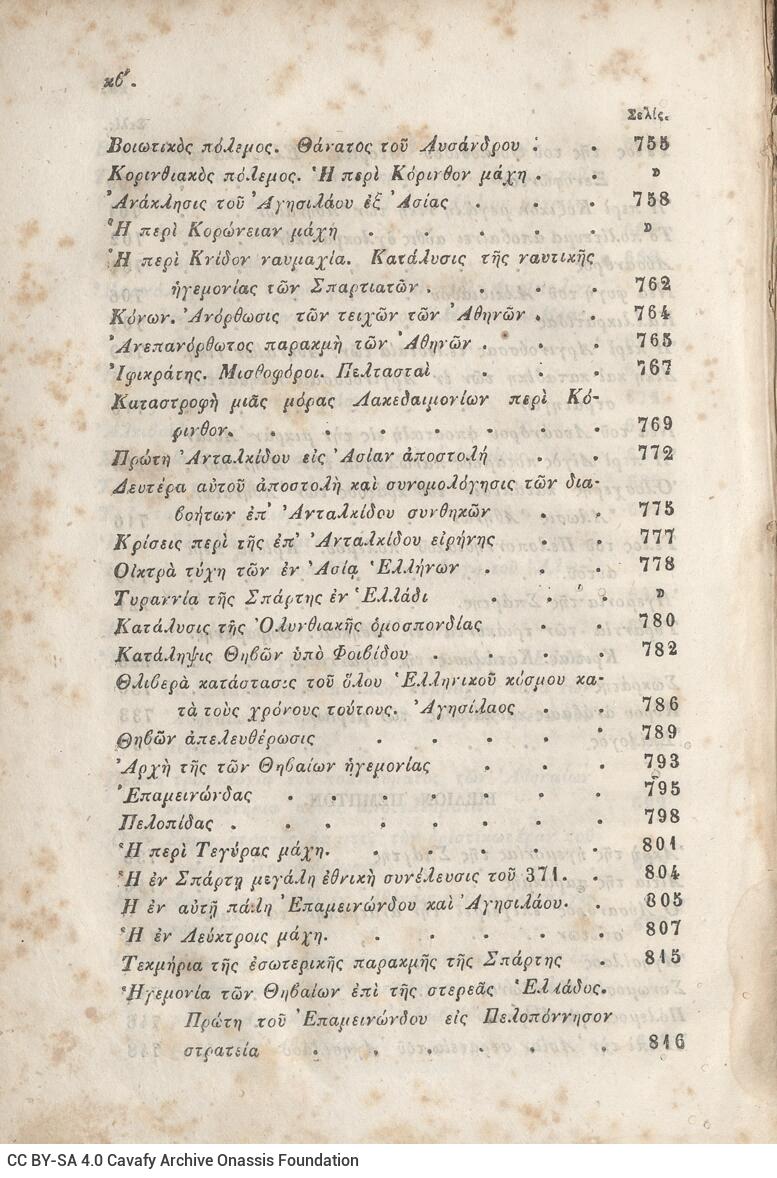 κϐ′.
Σελίς.
Βοιωτικὸς πόλεμος. Θάνατος τοῦ Λυσάνδρου . . 755
Κορινθιακὸς πόλεμος. Ἡ περὶ Κόρινθον μάχη . . »
Ἀνάκλησις τοῦ Ἀγησιλάου ἐξ Ἀσίας . . . 758
Ἡ περὶ Κορώνειαν μάχη . . . . . »
Ἡ περὶ Κνίδον ναυμαχία. Κατάλυσις τῆς ναυτικῆς
ἡγεμονίας τῶν Σπαρτιατῶν . . . . 762
Κόνων. Ἀνόρθωσις τῶν τειχῶν τῶν Ἀθηνῶν . . 764
Ἀνεπανόρθωτος παρακμὴ τῶν Ἀθηνῶν . . . 765
Ἰφικράτης. Μισθοφόροι. Πελτασταὶ . . . 767
Καταστροφὴ μιᾶς μόρας Λακεδαιμονίων περὶ Κό-
ρινθον. . . . . . . . 769
Πρώτη Ἀνταλκίδου εἰς Ἀσίαν ἀποστολή . . 772
Δευτέρα αὐτοῦ ἀποστολὴ καὶ συνομολόγησις τῶν δια-
ϐοήτων ἐπ' Ἀνταλκίδου συνθηκῶν . . 775
Κρίσεις περὶ τῆς ἐπ' Ἀνταλκίδου εἰρήνης . . 777
Οἰκτρὰ τύχη τῶν ἐν Ἀσίᾳ Ἑλλήνων . . . 778
Τυραννία τῆς Σπάρτης ἐν Ἑλλάδι . . . »
Κατάλυσις τῆς Ὀλυνθιακῆς ὁμοσπονδίας . . 780
Κατάληψις Θηϐῶν ὑπὸ Φοιϐίδου . . . . 782
Θλιϐερὰ κατάστασις τοῦ ὅλου Ἑλληνικοῦ κόσμου κα-
τὰ τοὺς χρόνους τούτους. Ἀγησίλαος . . 786
Θηϐῶν ἀπελευθέρωσις . . . . . 789
Ἀρχὴ τῆς τῶν Θηϐαίων ἡγεμονίας . . . 793
Ἐπαμεινώνδας . . . . . . . 795
Πελοπίδας . . . . . . . . 798
Ἡ περὶ Τεγύρας μάχη. . . . . . 801
Ἡ ἐν Σπάρτῃ μεγάλη ἐθνικὴ συνέλευσις τοῦ 371. . 804
Ἡ ἐν αὐτῇ πάλη Ἐπαμεινώνδου καὶ Ἀγησιλάου. . 805
Ἡ ἐν Λεύκτροις μάχη. . . . . . 807
Τεκμήρια τῆς ἐσωτερικῆς παρακμῆς τῆς Σπάρτης . 815
Ἡγεμονία τῶν Θηϐαίων ἐπὶ τῆς στερεᾶς Ἑλλάδος.
Πρώτη τοῦ Ἐπαμεινώνδου εἰς Πελοπόννησον
στρατεία . . . . . . 816
CC BY-SA 4.0 Cavafy Archive Onassis Foundation